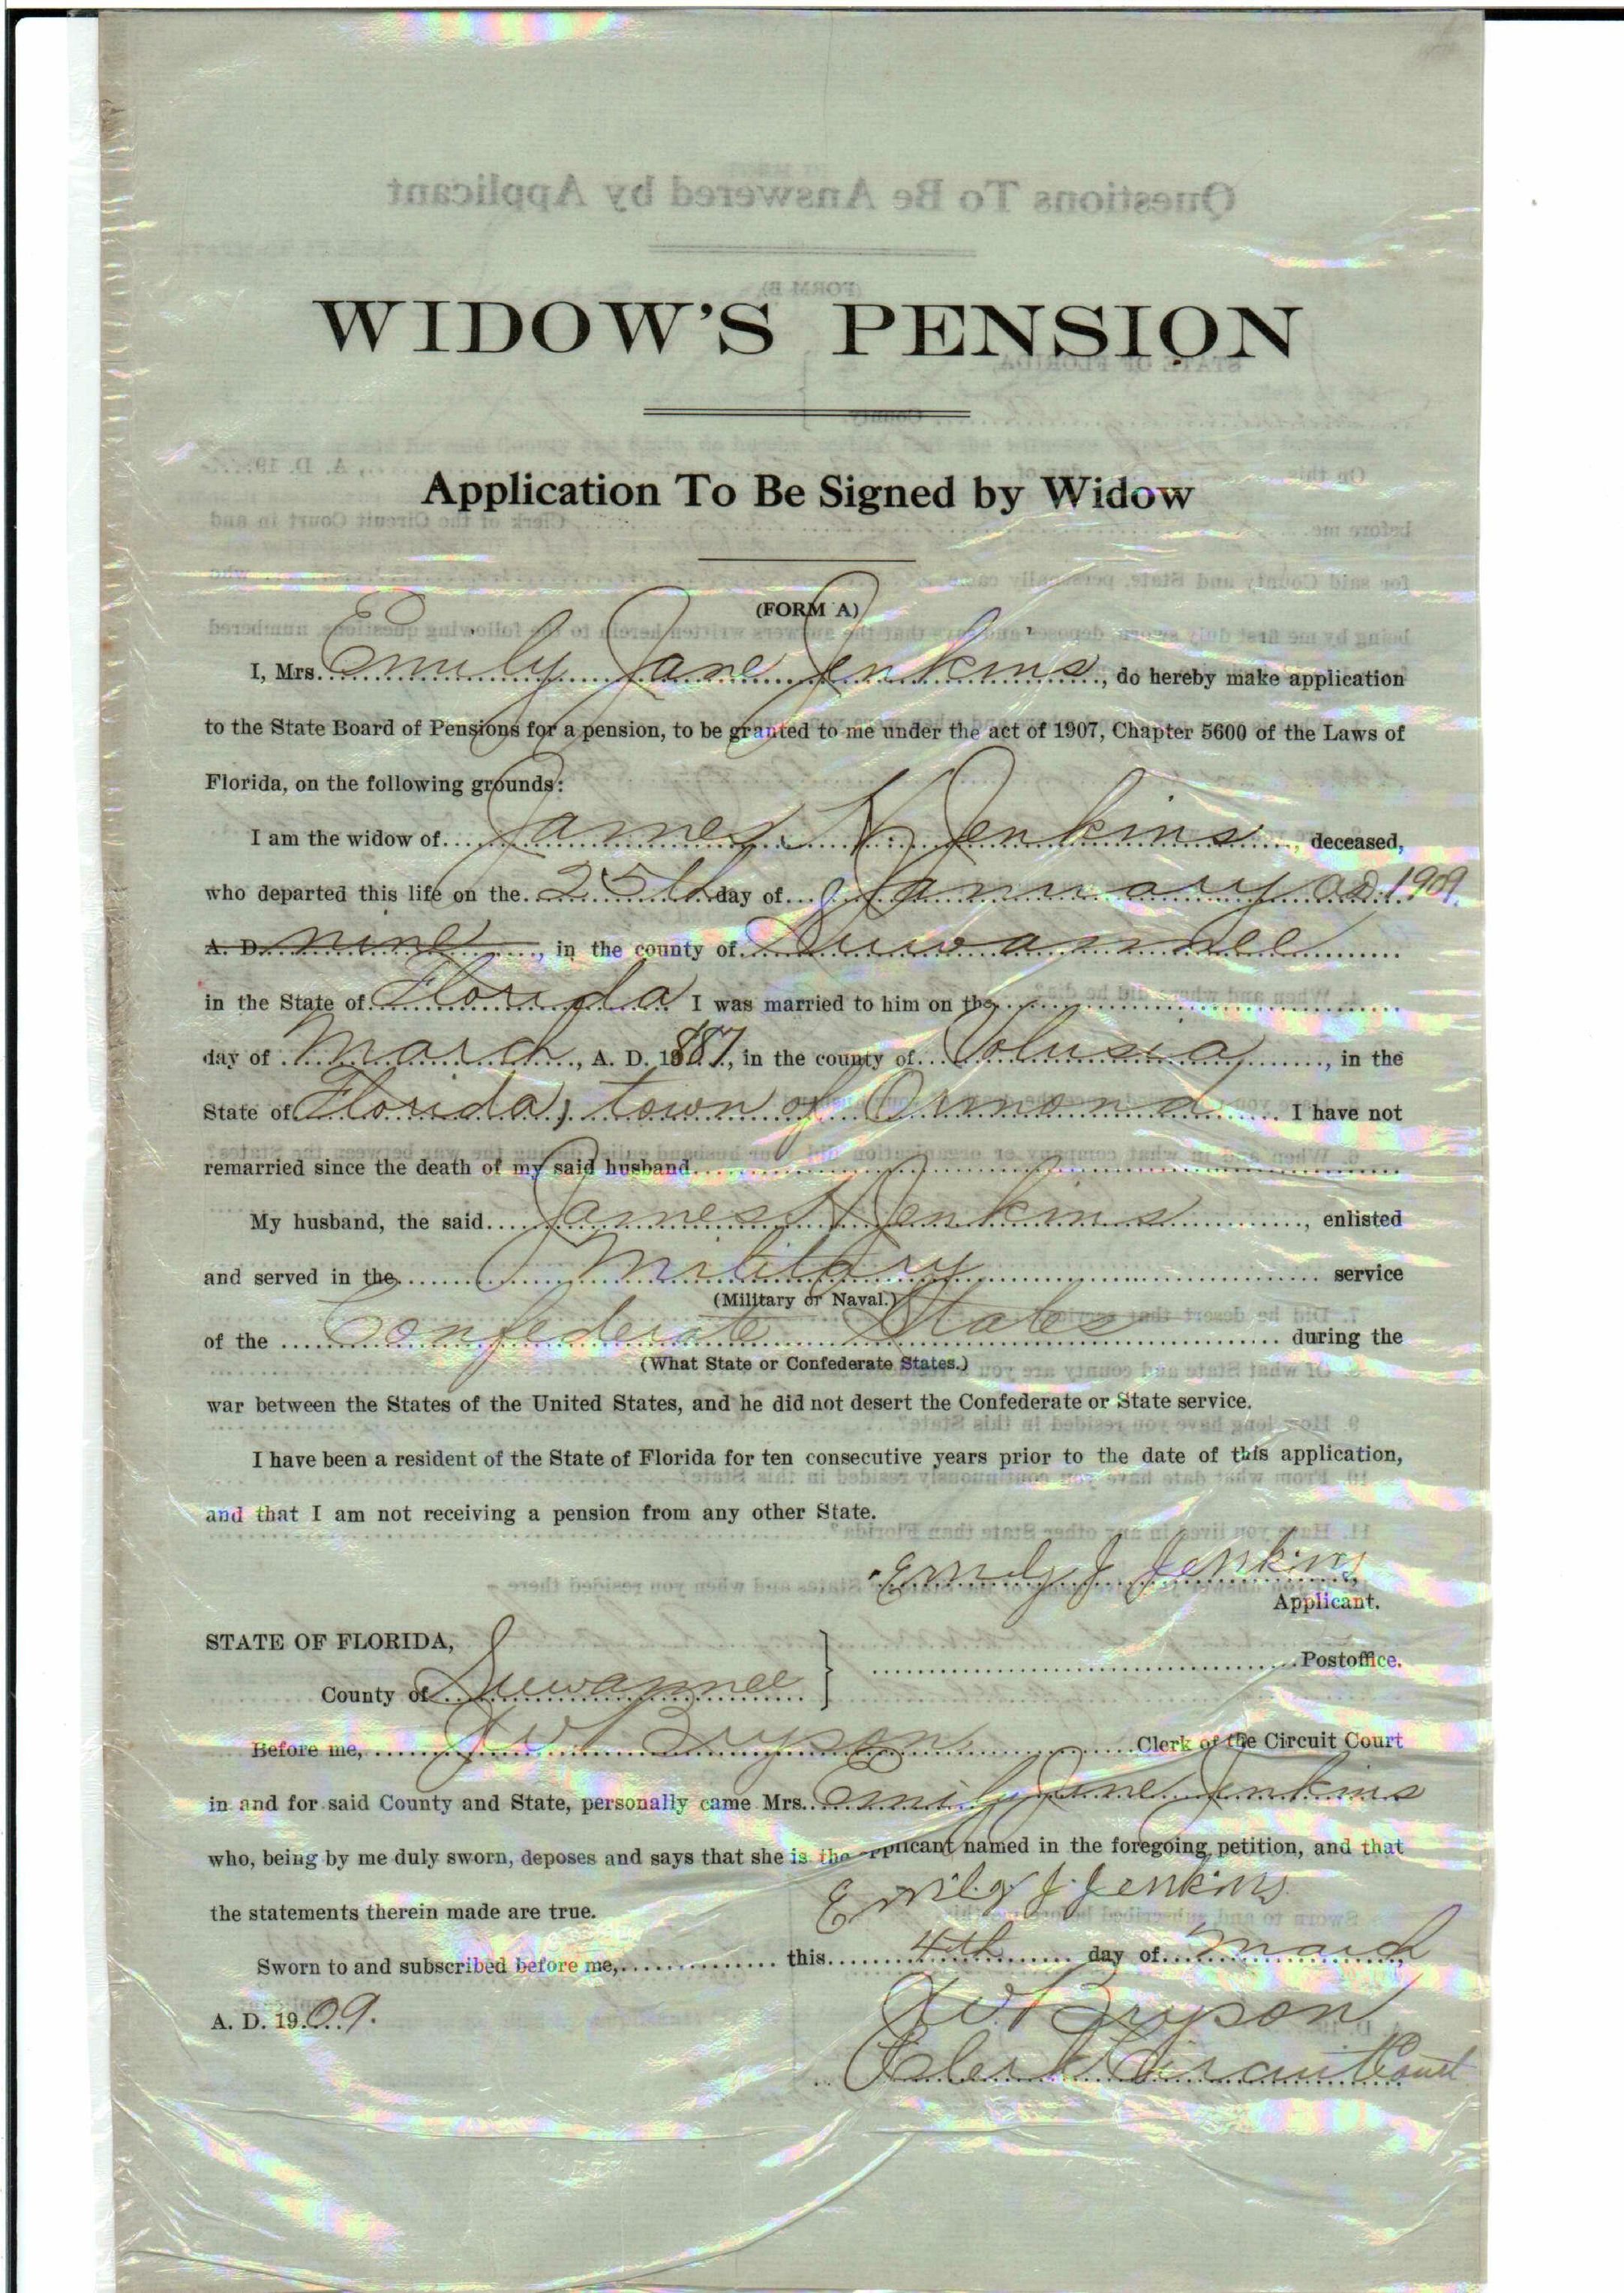 WIDOW'S PENSION
Application To Be Signed by Widow
(FORM A)
I, Mrs. Emily Jane Jenkins, do hereby make application
to the State Board of Pensions for a pension, to be granted to me under the act of 1907, Chapter 5600 of the Laws of
Florida, on the following grounds:
I am the widow of James Jenkins deceased,
who departed this life on the 25th day of January AD. 1909.
A. D. nine, in the county of Suwannee
in the State of Florida I was married to him on the
day of March, A. D. 1887, in the county of Volusia, in the
State of Florida, town of Ormond I have not
remarried since the death of my said husband
My husband, the said James Jenkins, enlisted
and served in the Military service
(Military or Naval.)
of the Confederate States during the
(What State or Confederate States.)
war between the States of the United States, and he did not desert the Confederate or State service.
I have been a resident of the State of Florida for ten consecutive years prior to the date of this application,
and that I am not receiving a pension from any other State.
Emily J Jenkins
Applicant.
STATE OF FLORIDA,
Postoffice.
County of Suwannee
Before me, Bryson Clerk of the Circuit Court
in and for said County and State, personally came Mrs. Emily Jane Jenkins
who, being by me duly sworn, deposes and says that she is the applicant named in the foregoing petition, and that
the statements therein made are true.
Emily J. Jenkins
Sworn to and subscribed before me, this 4th day of March
A. D. 1909.
Bryson
Clerk Circuit Court